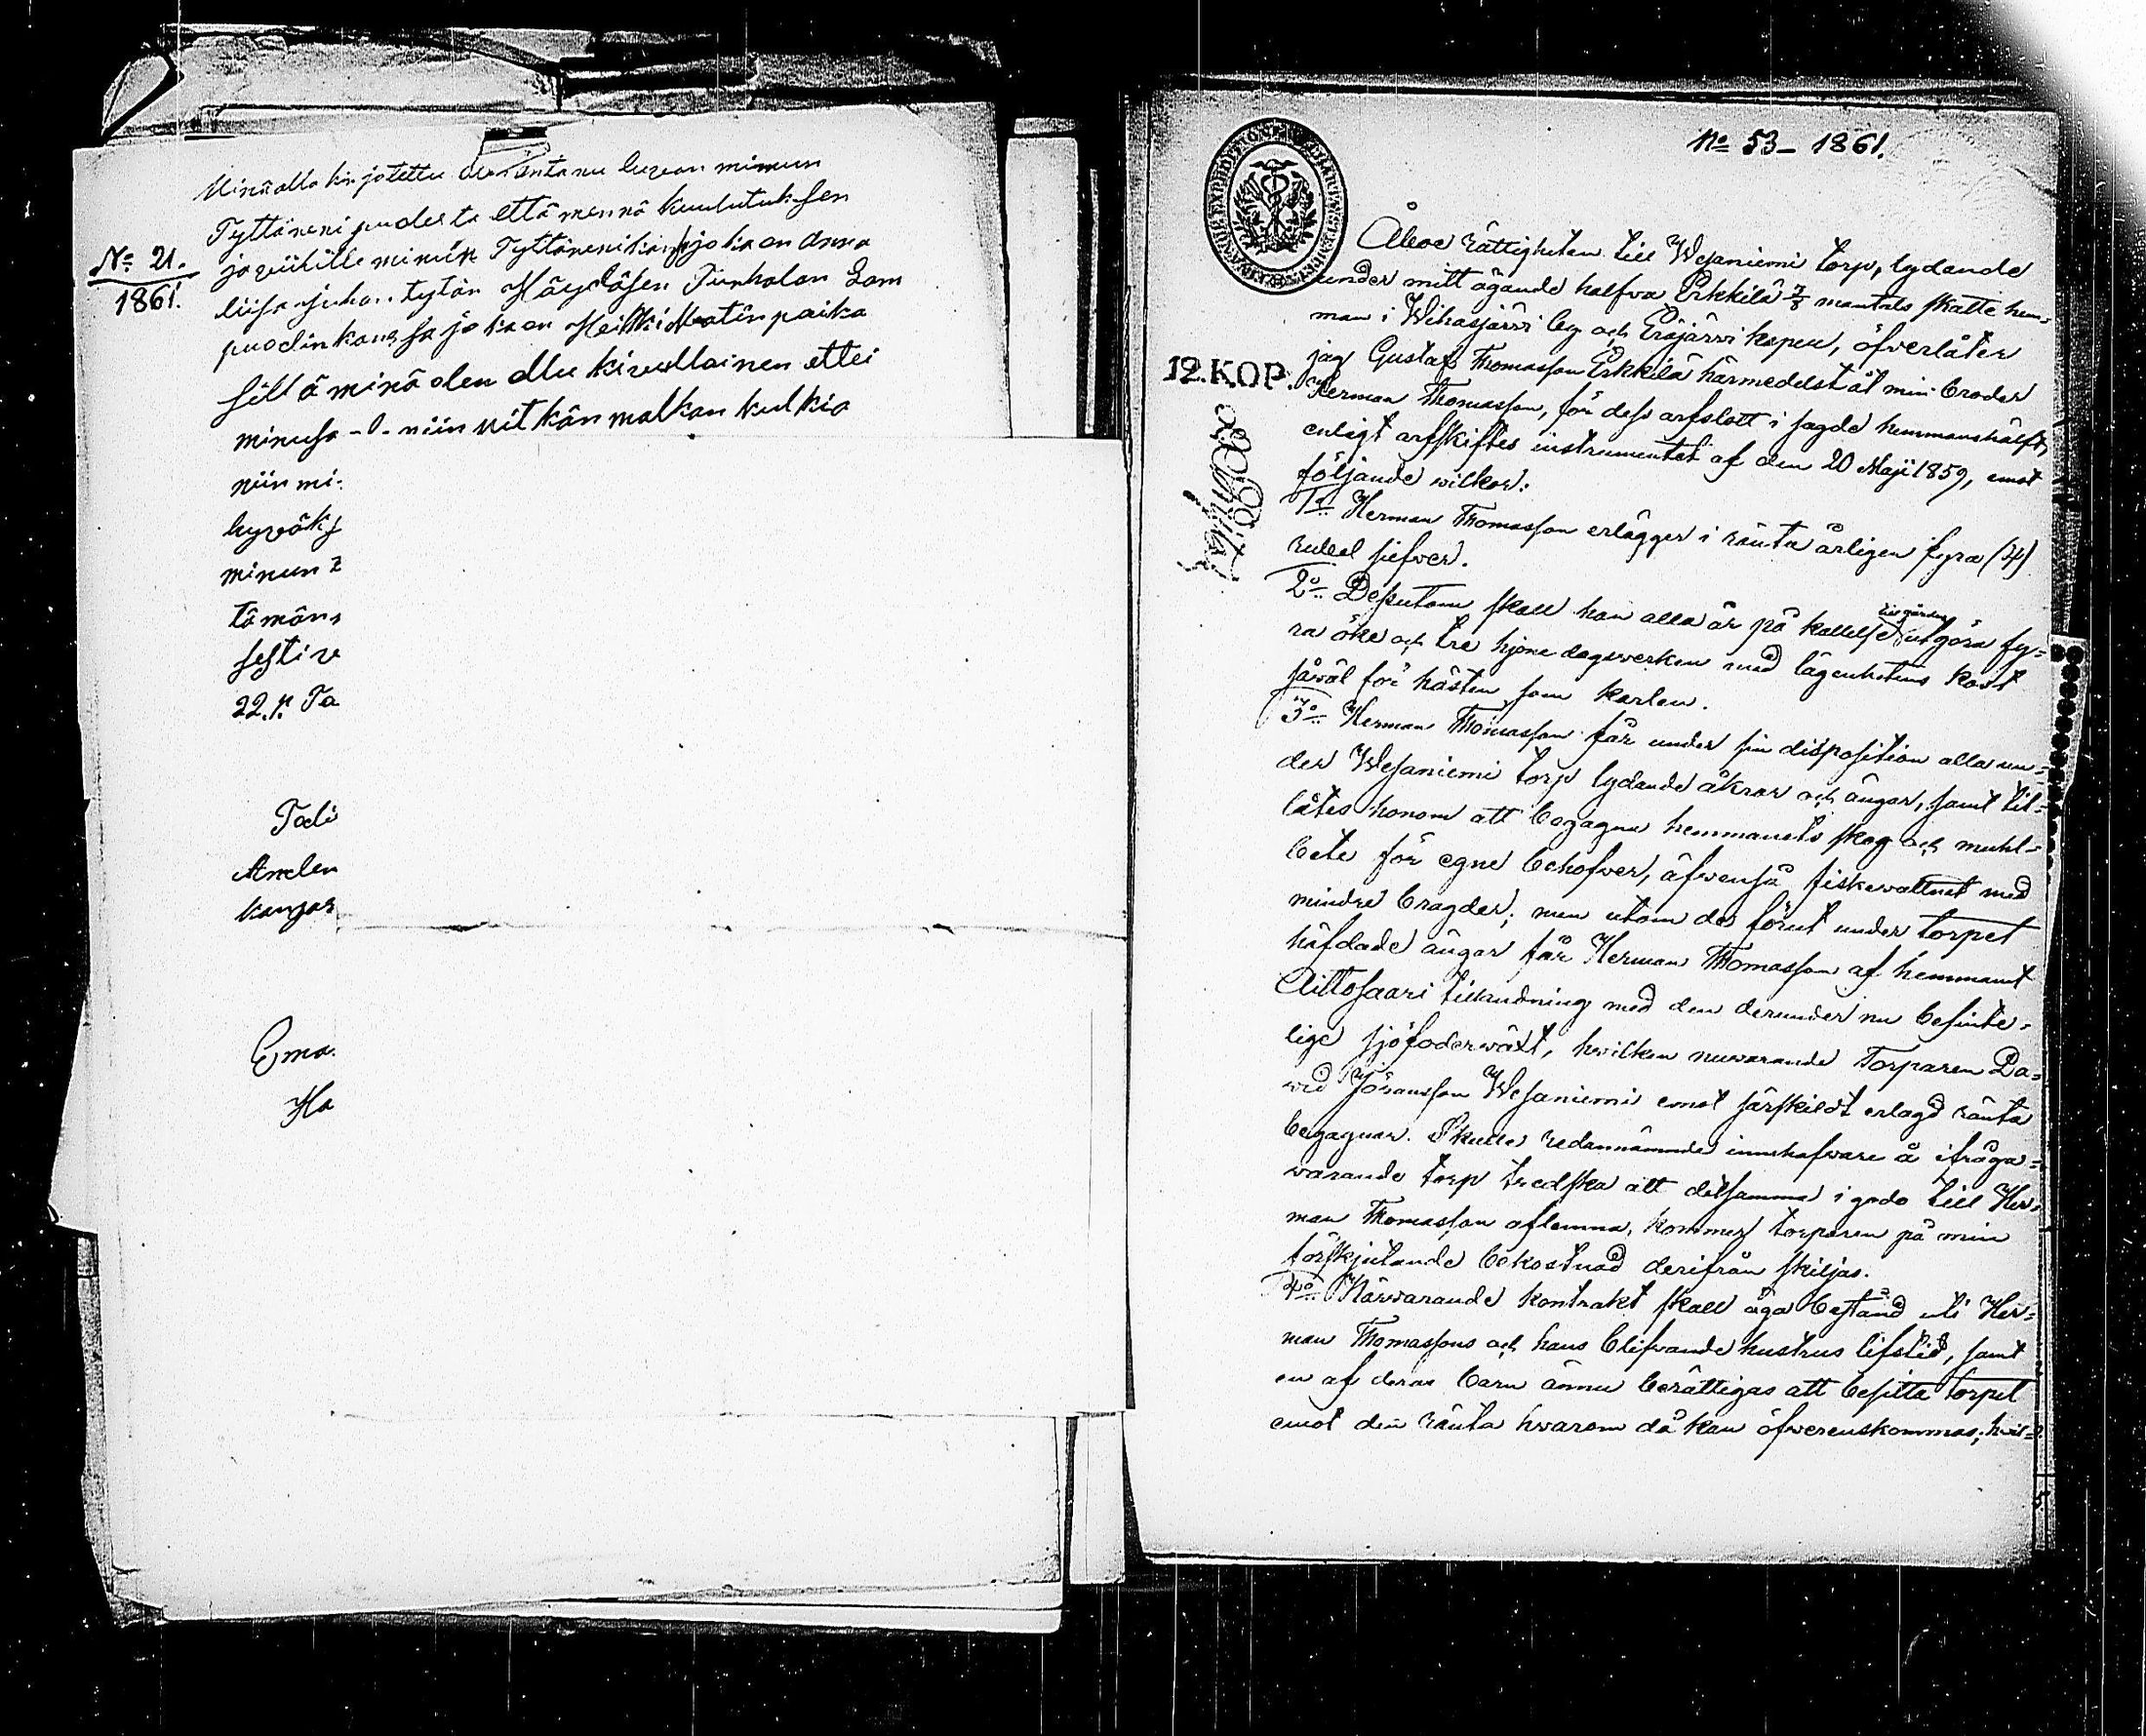 Minä alla kirjotettu olen antanu luvan minun
Tyttäreni puolesta että mennä kuulutuksen
No 21.
1861.
ja vihille minun Tyttäreni kans joka on Anna
liisa Juhan tytön Häyläsen Punkalan Lam
puodin kanssa joka on Heikki Matin paika
sillä minä olen ollu kivullainen ettei
minusa - o - niin pitkän matkan kulkia
niin mi-
hyväks
minun
tämän
22. p. Ta
Anden
kangas
Ha
No 53 - 1861.
12. KOP.
Åboe rättigheten till Wesaniemi torp, lydande
under mitt ägande halfwa Erkkilä mantals skatte hem-
man i Wihasjärvi by och Eräjärvi kapell, öfverlåter
jag Gustaf Thomasson Erkkilä härmedelst åt min broder
Herman Thomasson, för dess arfslott i sagde hemmanshälft,
enligt arfskiftes instrumentet af den 20 Maji 1859, emot
följande wilkor:
1o Herman Thomasson erlägger i ränta årligen fyra (4)
rubel silfver.
2o Dessutom skall han alla år på kallelse till gården utgöra fy-
ra öke och tre hjone dagswerken med lägenhetens kost
såwäl för hästen som karlen.
3o Herman Thomasson får under sin disposition alla un-
der Wesaniemi torp lydande åkrar och ängar, samt til-
låtes honom att begagna hemmanets skog och muhl-
bete för egne behofver, äfwenså fiskewattnet med
mindre bragder; men utom de förut under torpet
häfdade ängar får Herman Thomasson af hemmanet
Aittosaari tillandning med den derunder nu befinte-
lige sjöfoderwäxt, hwilken nuwarande Torparen Da-
wid Jöransson Wesaniemi emot särskildt erlagd ränta
begagnar. Skulle redannämnde innehafware å ifråga-
warande torp tredska att detsamma i godo till Her-
man Thomasson aflemna, kommer torparen på min
förskjutande bekostnad derifrån skiljas.
4o Närwarande kontrakt skall äga bestånd uti Her-
man Thomassons och hans blifwande hustrus lifstid, samt
en af deras barn ännu berättigas att besitta torpet
emot den ränta hwarom då kan öfwerenskommas; hwil-